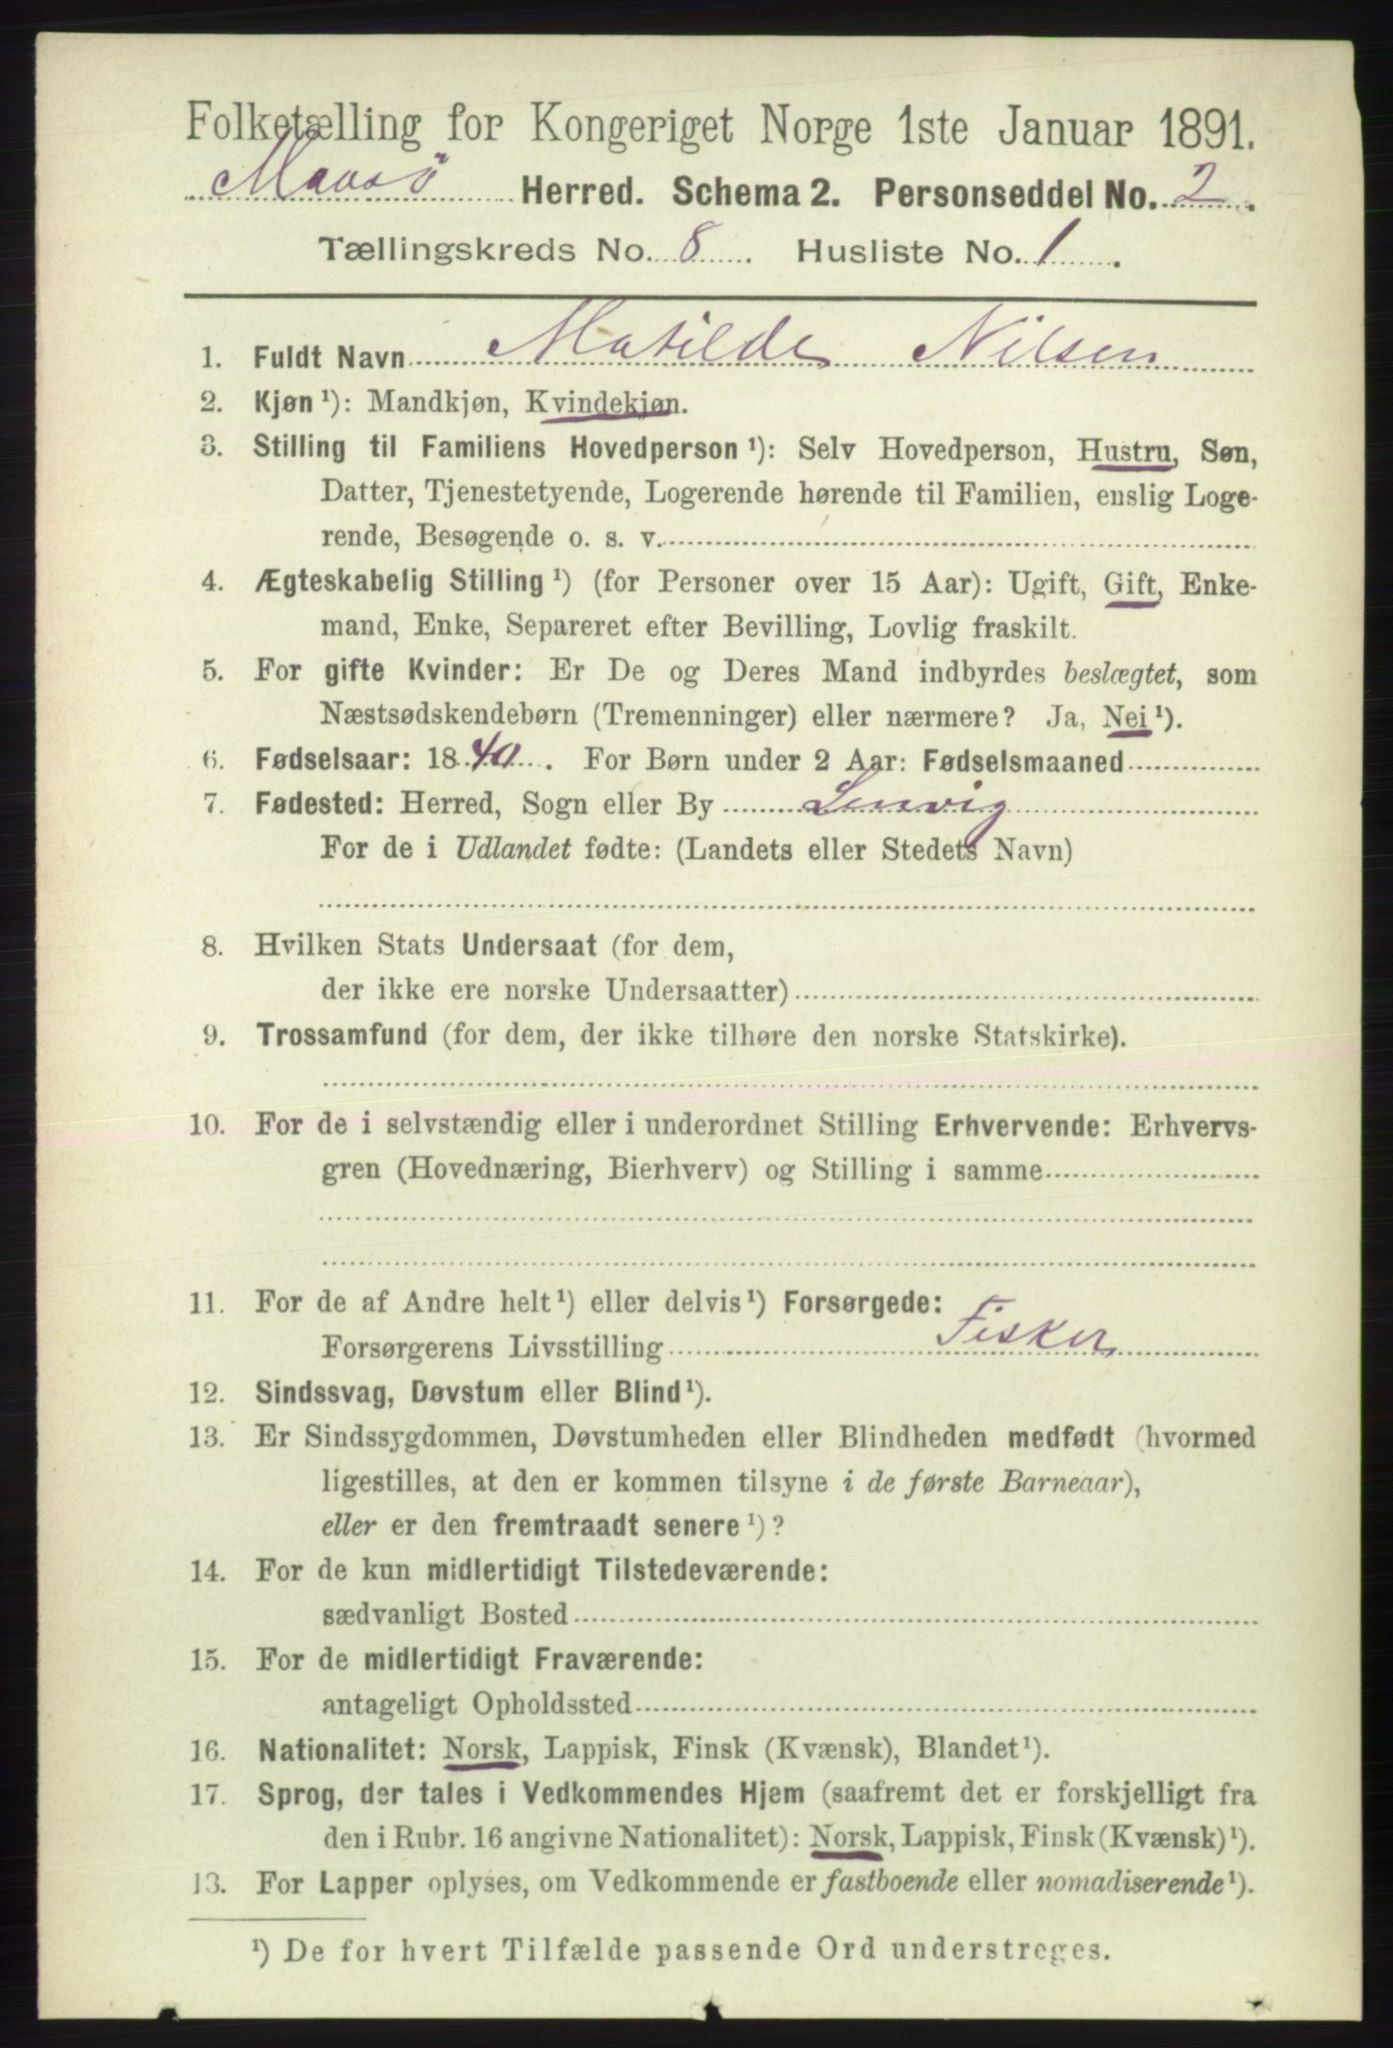 Folketælling for Kongeriget Norge 1ste Januar 1891.
Maasö Herred. Schema 2. Personseddel No. 2.
Tællingskreds No. 8. Husliste No. 1.
1. Fuldt Navn Matilde Nilsen
2. Kjøn ¹): Mandkjøn, Kvindekjøn.
3. Stilling til Familiens Hovedperson ¹): Selv Hovedperson, Hustru, Søn,
Datter, Tjenestetyende, Logerende hørende til Familien, enslig Loge-
rende, Besøgende o. s. v.
4. Ægteskabelig Stilling ¹) (for Personer over 15 Aar): Ugift, Gift, Enke-
mand, Enke, Separeret efter Bevilling, Lovlig fraskilt.
5. For gifte Kvinder: Er De og Deres Mand indbyrdes beslægtet, som
Næstsødskendebørn (Tremenninger) eller nærmere? Ja, Nei ¹).
6. Fødselsaar: 1840. For Børn under 2 Aar: Fødselsmaaned
7. Fødested: Herred, Sogn eller By Lenvig
For de i Udlandet fødte: (Landets eller Stedets Navn)
8. Hvilken Stats Undersaat (for dem,
der ikke ere norske Undersaatter)
9. Trossamfund (for dem, der ikke tilhøre den norske Statskirke).
10. For de i selvstændig eller i underordnet Stilling Erhvervende: Erhvervs-
gren (Hovednæring, Bierhverv) og Stilling i samme
11. For de af Andre helt ¹) eller delvis ¹) Forsørgede:
Forsørgerens Livsstilling Fisker
12. Sindssvag, Døvstum eller Blind ¹).
13. Er Sindssygdommen, Døvstumheden eller Blindheden medfødt (hvormed
ligestilles, at den er kommen tilsyne i de første Barneaar),
eller er den fremtraadt senere ¹)?
14. For de kun midlertidigt Tilstedeværende:
sædvanligt Bosted
15. For de midlertidigt Fraværende:
antageligt Opholdssted
16. Nationalitet: Norsk, Lappisk, Finsk (Kvænsk), Blandet ¹).
17. Sprog, der tales i Vedkommendes Hjem (saafremt det er forskjelligt fra
den i Rubr. 16 angivne Nationalitet): Norsk, Lappisk, Finsk (Kvænsk) ¹).
13. For Lapper oplyses, om Vedkommende er fastboende eller nomadiserende ¹).
¹) De for hvert Tilfælde passende Ord understreges.